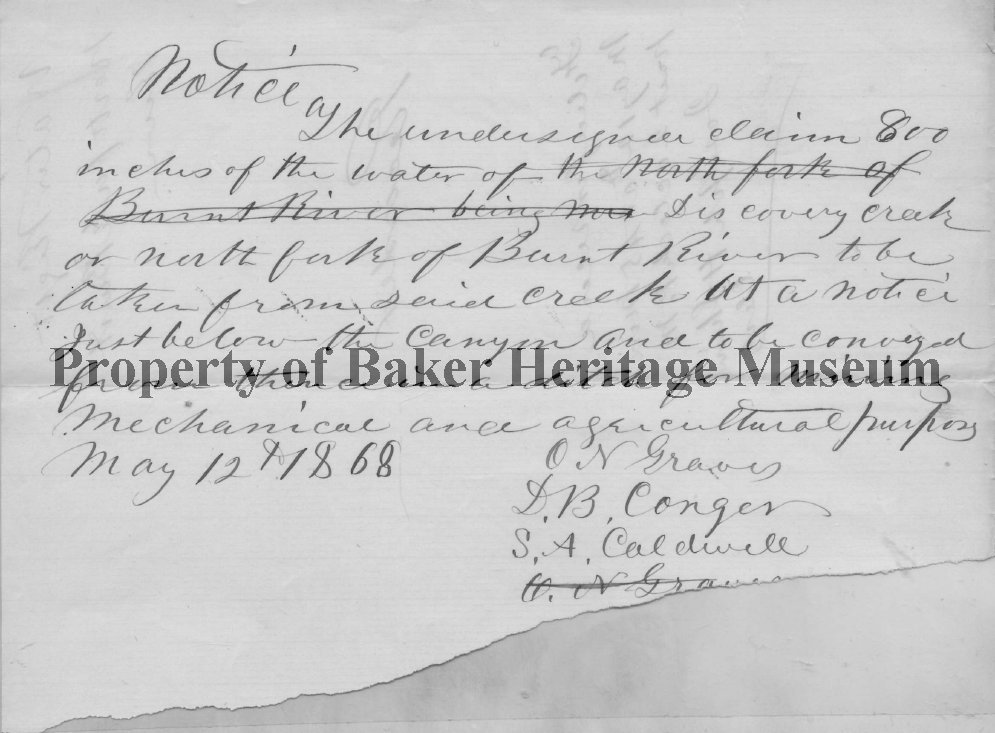 Notice
The undersigned claim 800
inches of the water of the North fork of
Burnt River being Discovery creek
or north fork of Burnt River to be
taken from said creek At a notice
Just below the Canyon and to be conveyed
Property of Baker Heritage Museum
from thence in a ditch for Mining
Mechanical and agricultural purposes
May 12th 1868
O N Graves
D. B. Conger
S. A. Caldwell
O. N Graves